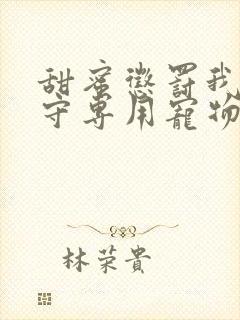 甜蜜懲罰我
守專用寵物
林荣貴